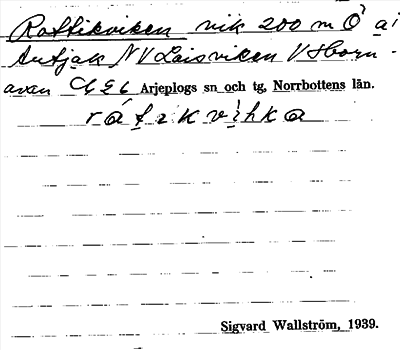 Rattikviken vik 200 m Ö ai
Autjak NV Laisviken V Horn-
avan C4 E6 Arjeplogs sn och tg, Norrbottens län.
ráfikvihka
Sigvard Wallström, 1939.